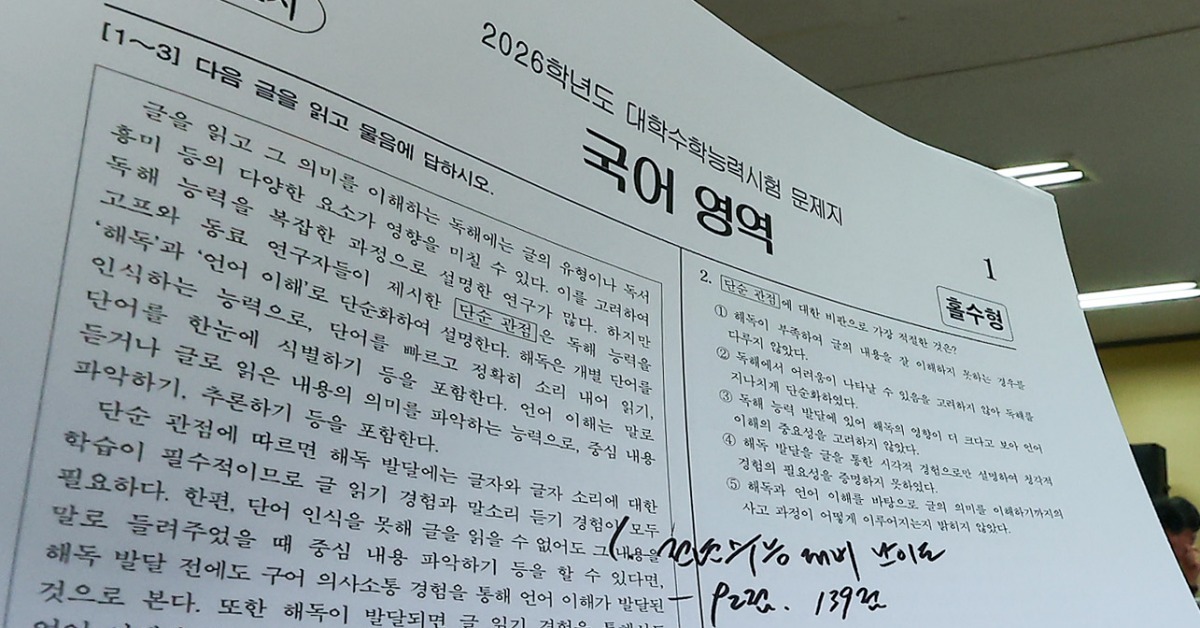 2026학년도 대학수학능력시험 문제지
국어 영역
1
홀수형
[1～3] 다음 글을 읽고 물음에 답하시오.
글을 읽고 그 의미를 이해하는 독해에는 글의 유형이나 독서
흥미 등의 다양한 요소가 영향을 미칠 수 있다. 이를 고려하여
독해 능력을 복잡한 과정으로 설명한 연구가 많다. 하지만
고프와 동료 연구자들이 제시한 단순 관점은 독해 능력을
‘해독’과 ‘언어 이해’로 단순화하여 설명한다. 해독은 개별 단어를
인식하는 능력으로, 단어를 빠르고 정확히 소리 내어 읽기,
단어를 한눈에 식별하기 등을 포함한다. 언어 이해는 말로
듣거나 글로 읽은 내용의 의미를 파악하는 능력으로, 중심 내용
파악하기, 추론하기 등을 포함한다.
단순 관점에 따르면 해독 발달에는 글자와 글자 소리에 대한
학습이 필수적이므로 글 읽기 경험과 말소리 듣기 경험이 모두
필요하다. 한편, 단어 인식을 못해 글을 읽을 수 없어도 그 내용을
말로 들려주었을 때 중심 내용 파악하기 등을 할 수 있다면,
해독 발달 전에도 구어 의사소통 경험을 통해 언어 이해가 발달된
것으로 본다. 또한 해독이 발달되면 글 읽기 경험을 통해서도
2. 단순 관점에 대한 비판으로 가장 적절한 것은?
① 해독이 부족하여 글의 내용을 잘 이해하지 못하는 경우를
다루지 않았다.
② 독해에서 어려움이 나타날 수 있음을 고려하지 않아 독해를
지나치게 단순화하였다.
③ 독해 능력 발달에 있어 해독의 영향이 더 크다고 보아 언어
이해의 중요성을 고려하지 않았다.
④ 해독 발달을 글을 통한 시각적 경험으로만 설명하여 청각적
경험의 필요성을 증명하지 못하였다.
⑤ 해독과 언어 이해를 바탕으로 글의 의미를 이해하기까지의
사고 과정이 어떻게 이루어지는지 밝히지 않았다.
대비 난이도
139점